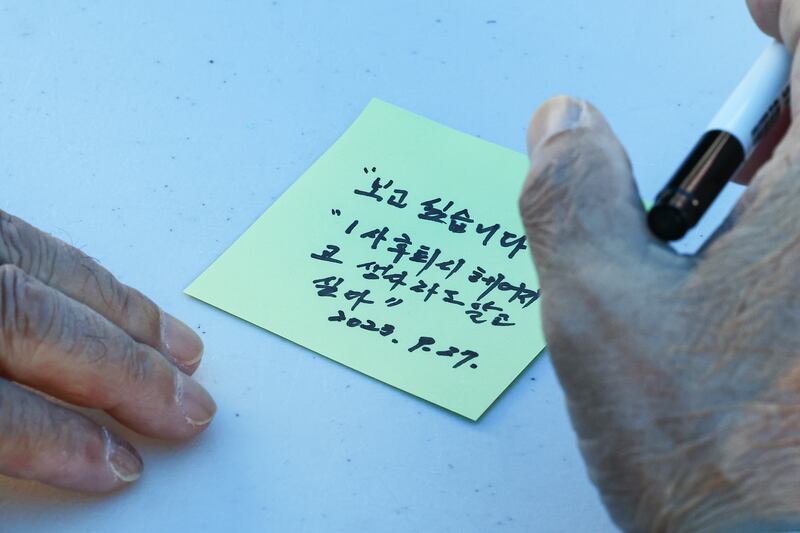 "보고 싶습니다
"1 사후퇴시 헤어지
고 생사라도 알고
싶다"
2023. 9. 27.